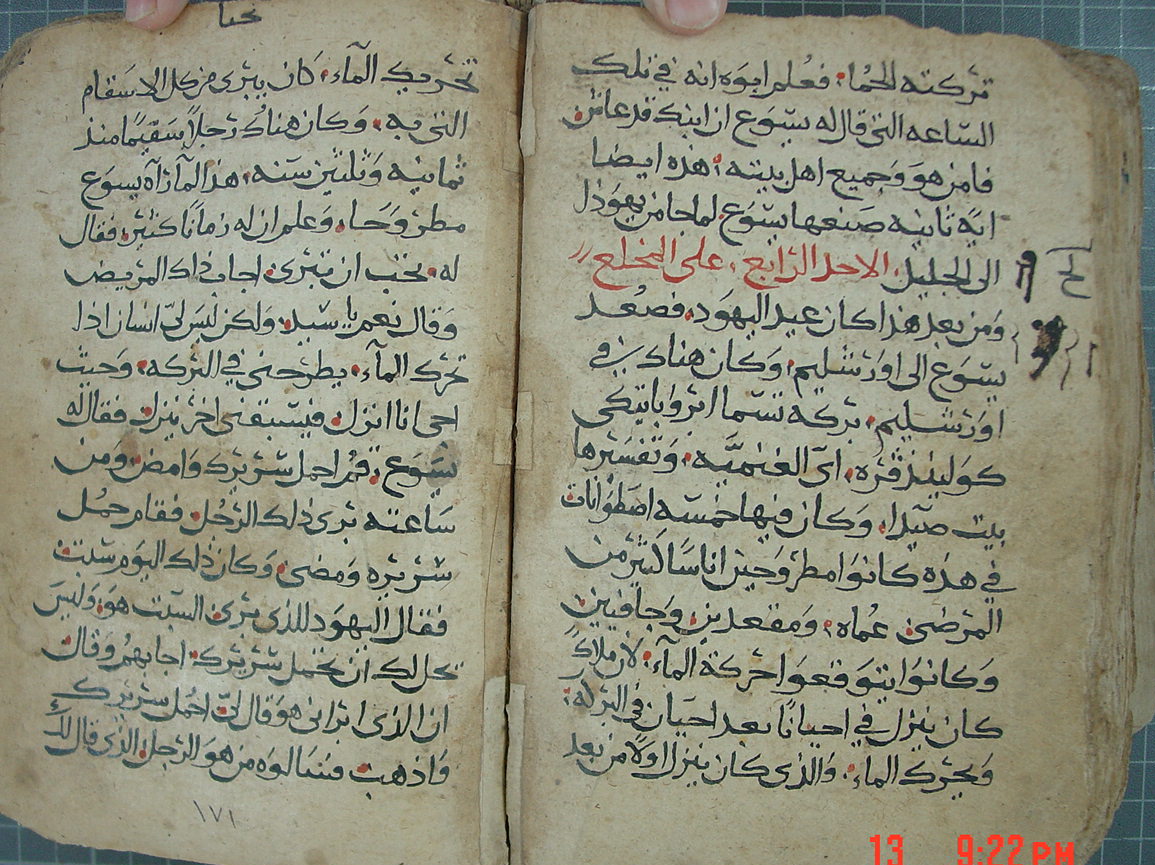 تركته الحما؛ فعلم ابوه انه في تلك
الساعه التي قال له يسوع ان ابنك قد عاش
فامن هو وجميع اهل بيته؛ هذه ايضا
ايه ثانيه صنعها يسوع لما جا من يهوذا
الى الجليل. الاحد الرابع، على المخلع
ومن بعد هذا كان عيد اليهود. فصعد
يسوع الى اورشليم؛ وكان هناك في
اورشليم. بركه تسما
اي الغنميه. وتفسيرها
بيت صيدا. وكان فيها خمسه اصطوانات
في هذه كانوا مطروحين اناسا كتير من
المرضى عماه؛ ومقعدين. وجافين
وكانوا يتوقعوا حركة المآء. لان ملاك
كان ينزل في احيانا بعد احيان في البركه:
ويحرك الماء. والذي كان ينزل اولا من بعد
تحريك المآء. كان يبرى من كل الاسقام
التي به. وكان هناك رجلا سقيما منذ
ثمانيه وثلثين سنه. هذا لما رآه يسوع
مطروحا. وعلم ان له زمانا كثير. فقال
له. تحب ان تبرى. اجاب ذاك المريض
وقال نعم يا سيد. ولكن ليس لي انسان اذا
تحرك المآء. يطرحني في البركه. وحيث
اجي انا انزل. فيسبقني اخر ينزل. فقال له
يسوع. قم احمل سريرك وامض. ومن
ساعته برى ذاك الرجل. فقام حمل
سريره ومضى. وكان ذلك اليوم سبت
فقال اليهود للذي برى. السبت هو. وليس
تحل لك ان تحمل سريرك. اجابهم وقال
ان الذي ابراني هو قال لي احمل سريرك
واذهب فسالوه من هو الرجل الذي قال لك
١٧١
13 9:22 PM